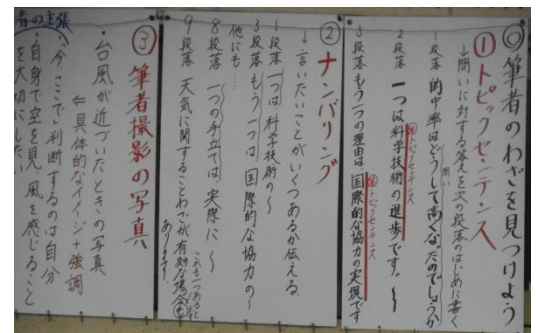 ◎筆者のわざを見つけよう
①トピックセンテンス
↓問いに対する答えを次の段落のはじめに書く
問い
1段落 的中率はどうして高くなったのでしょうか
トピックセンテンス
2段落 一つは科学技術の進歩です。〜
トピックセンテンス
3段落 もう一つの理由は国際的な協力の実現です
②ナンバリング
↓言いたいことがいくつあるか伝える。
1段落 一つは科学技術の〜
3段落 もう一つは、国際的な協力の〜
他にも…
8段落 一つの手立ては、実際に〜
9段落 天気に関することわざが有効な場合も
あります。
③筆者撮影の写真
・台風が近づいたときの写真
⇐具体的なイメージ+強調
者の主張
・「今、ここで」判断するのは自分
・自身で空を見、風を感じること
を大切にしたい